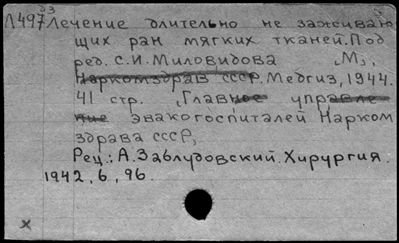 33
Л497 Лечение длительно не заживаю
щих ран мягких тканей. Под
ред. С.И. Миловидова М.,
Наркомздрав СССР. Медгиз, 1944.
41 стр. (Главное управле
ние эвакогоспиталей Нарком
здрава СССР,
Рец.: А. Заблудовский. Хирургия.
1942, 6, 96.
x